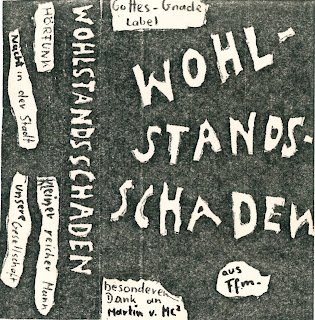 HÖRFUNK
Nacht in der Stadt
Kleiner reicher Mann
unsere Gesellschaft
WOHLSTANDSSCHADEN
Gottes-Gnade
Label
WOHL-
STANDS-
SCHADEN
aus
Ffm.
besonderen
Dank an
Martin v. Mc²